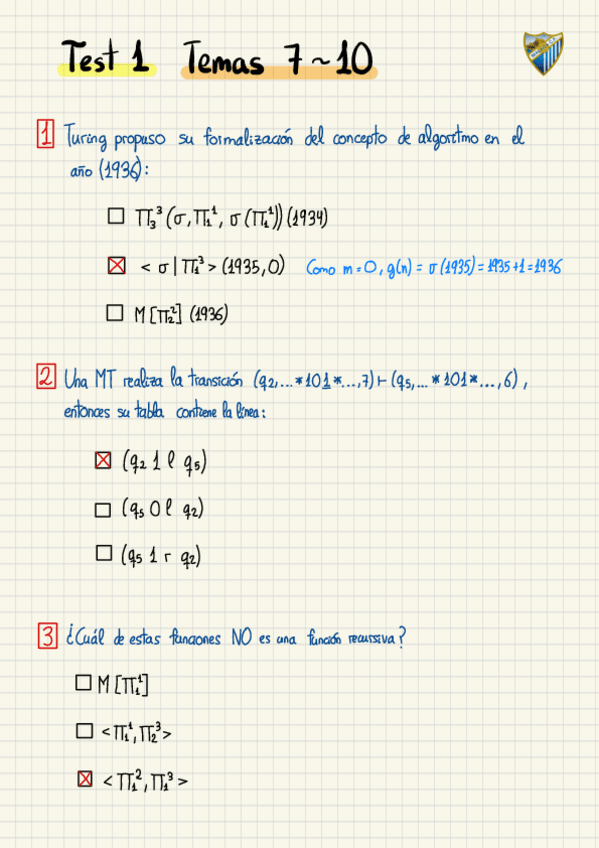 Test 1 Temas 7~10
1 Turing propuso su formalización del concepto de algoritmo en el
año (1936):
∏₃³(σ, ∏₁¹, σ(∏₁¹)) (1934)
<σ|∏₁³> (1935,0) Como m=0, g(n) = σ(1935) = 1935+1 = 1936
M[∏₂²] (1936)
2 Una MT realiza la transición (q₂,...*101*...,7)⊢(q₅,...*101*...,6),
entonces su tabla contiene la línea:
(q₂ 1 l q₅)
(q₅ 0 l q₂)
(q₅ 1 r q₂)
3 ¿Cuál de estas funciones NO es una función recursiva?
M[∏₁¹]
<∏₁¹, ∏₂³>
<∏₁², ∏₁³>